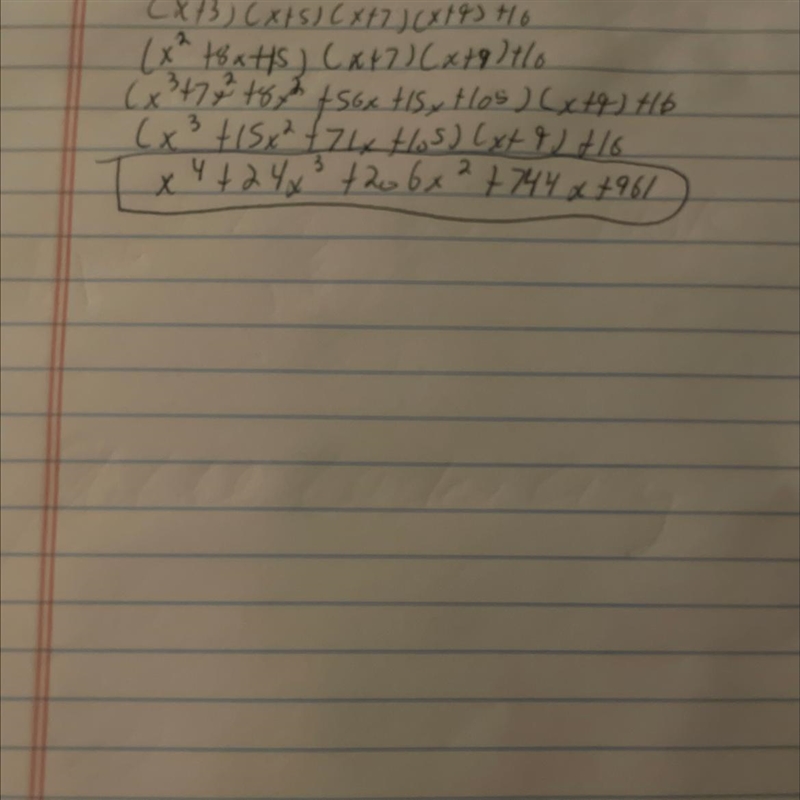 (x+3)(x+5)(x+7)(x+9)+16
(x² +8x+15) (x+7)(x+9)+16
(x³+7x²+8x² +56x+15x+105)(x+9)+16
(x³ +15x²+71x+105)(x+9)+16
x⁴+24x³+206x²+744x+961